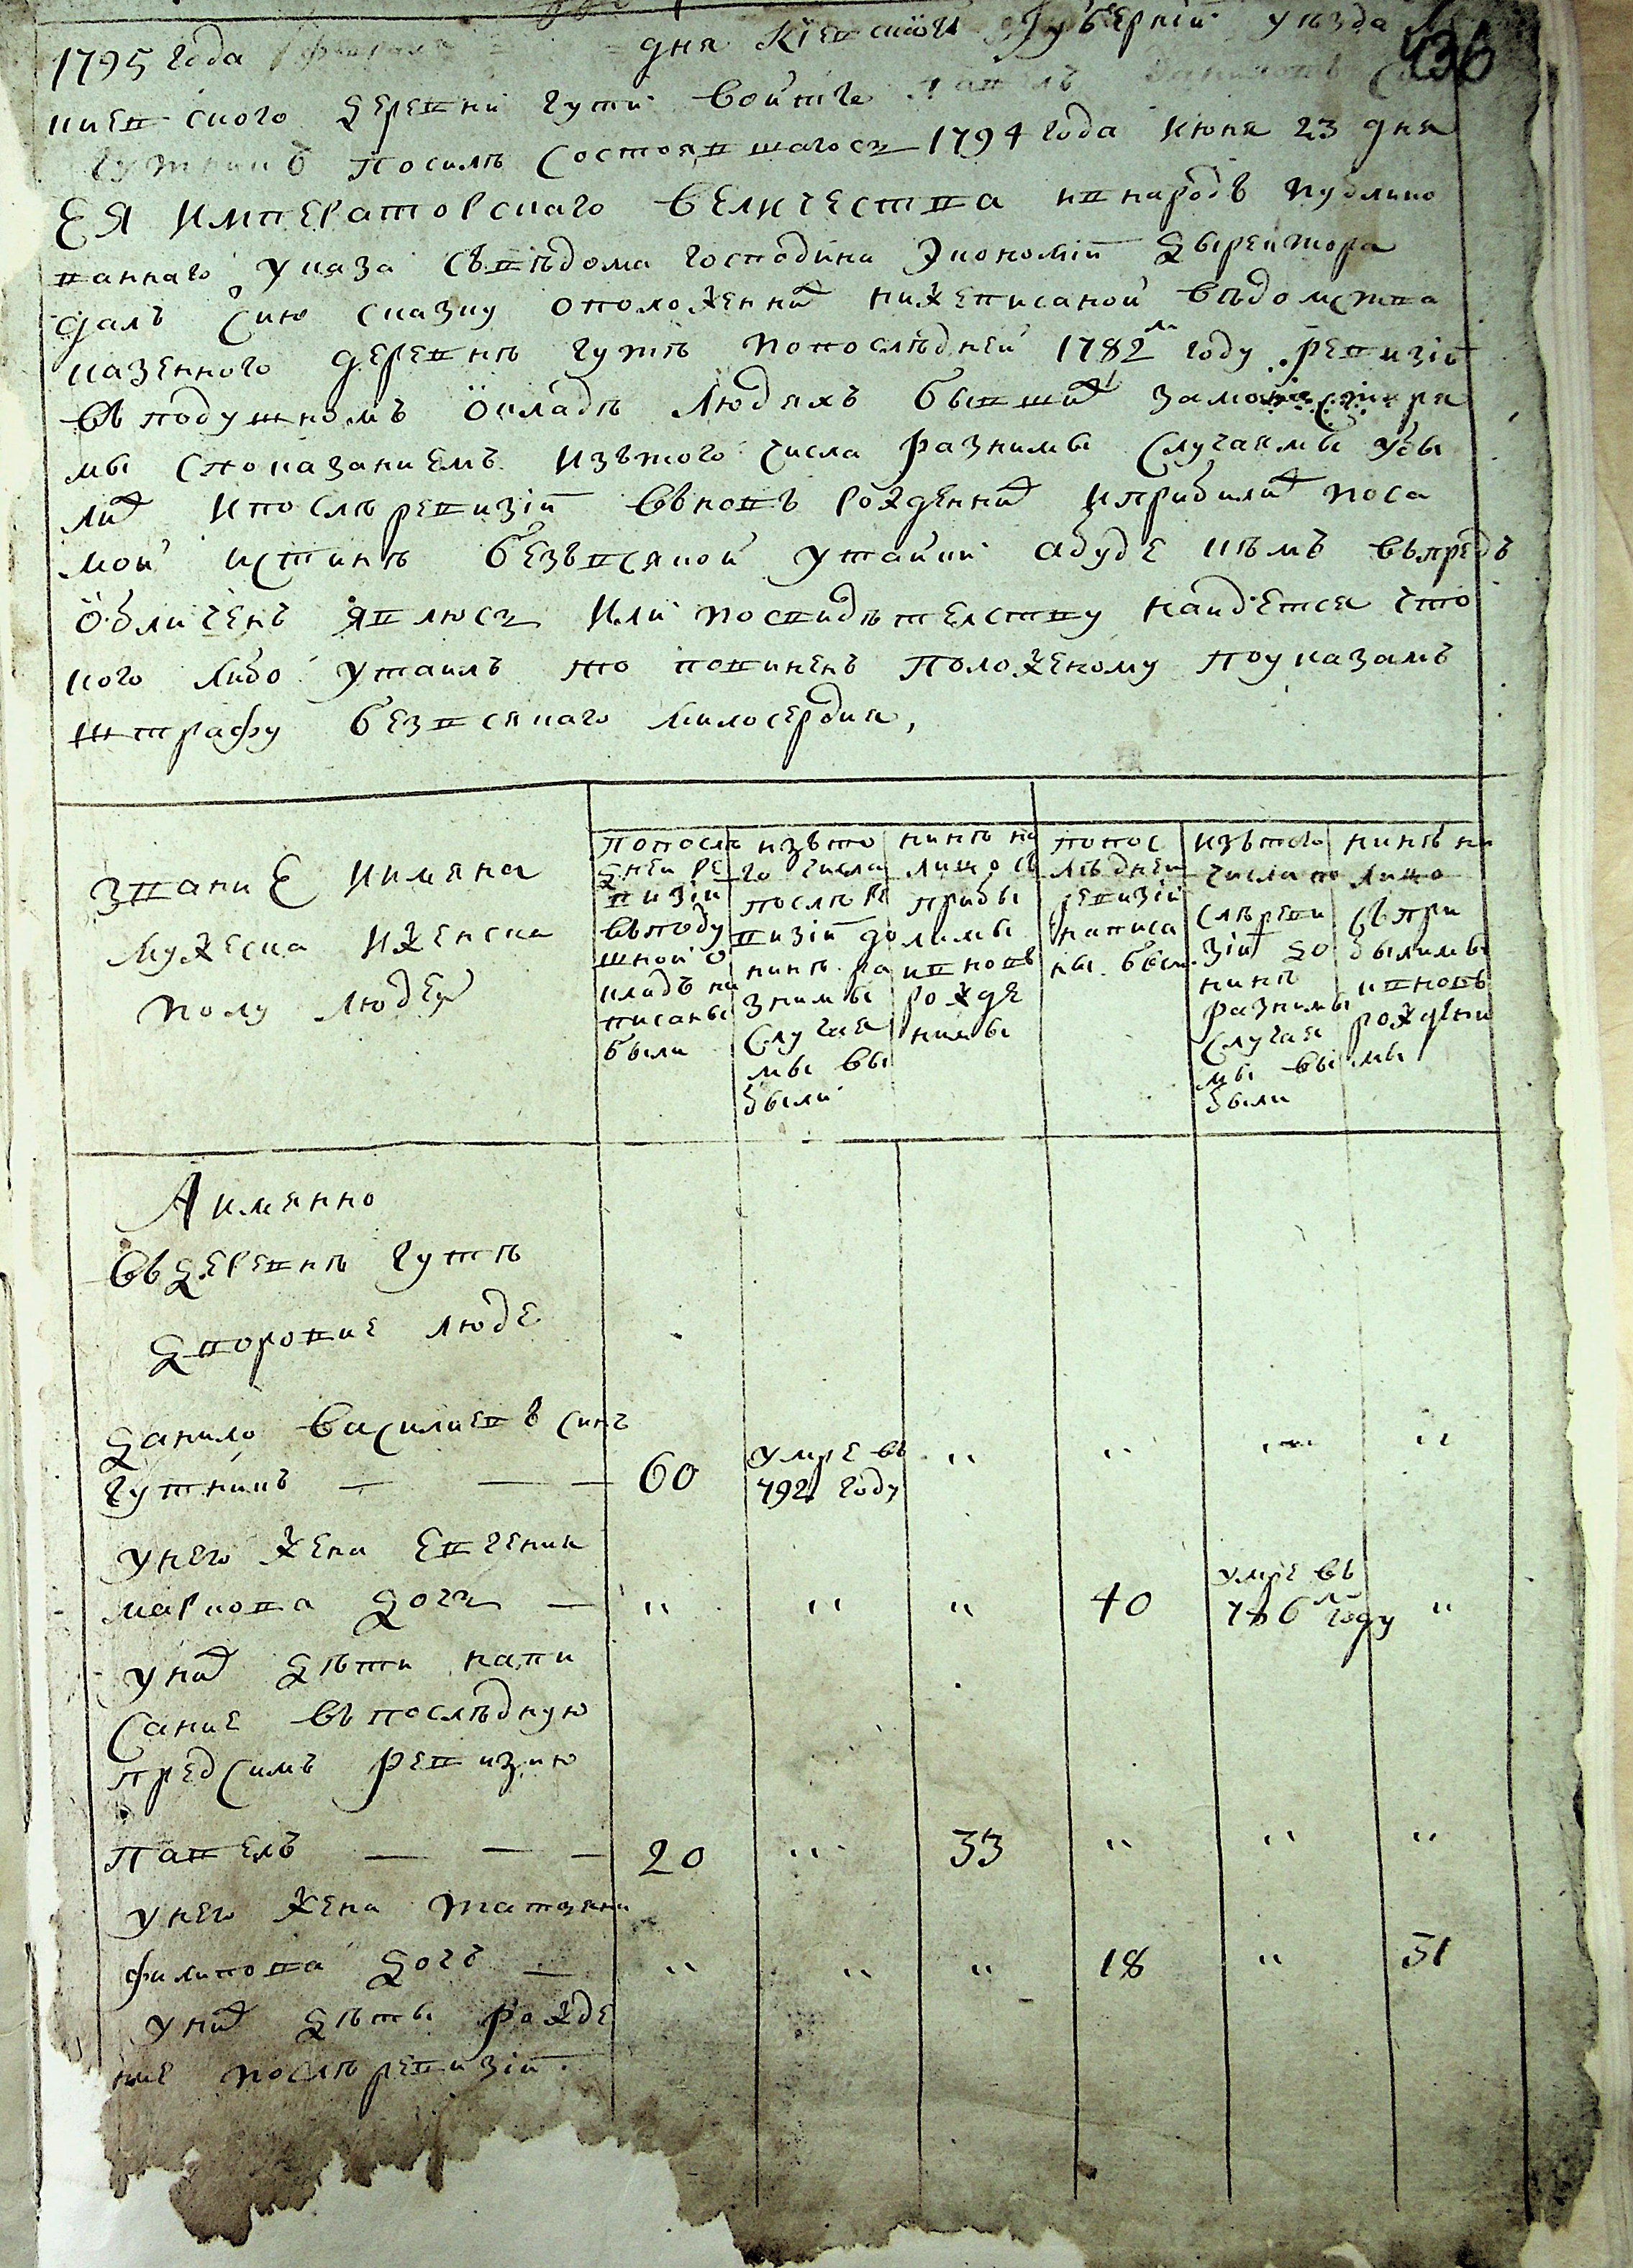 436
1795 года февраля дня Кіевской Губерніи уезда
киевского деревни гути войтъ Павелъ Даниловъ С
гутникъ посиле состоявшагось 1794 года июня 23 дня
Ея императорскаго величества внародъ публико
ваннаго указа съвѣдома господина Экономіи дыректора
далъ сию сказку оположенній нижеписаной вѣдомства
казенного деревнѣ гутѣ попослѣдней 1782 году ревизіи
въ подушномъ окладѣ людяхъ бывший замонастыря
мы споказаниемъ изътого числа разними случаямы убы
лих ипослѣ ревизіи вьновъ рожденних иприбилих поса
мой истинѣ безъвсякой утайки абуде кѣмъ въпредъ
обличенъ явлюсь или посвидѣтелству найдется что
кого либо утаилъ то повиненъ положеному поуказамъ
штрафу безвсякаго милосердия,
звание иимяна
мужеска иженска
полу людей
попослѣ
дней ре
визіи
въподу
шной о
кладъ на
писаны
были
изьто
го числа
послѣ ре
визіи до
нинѣ ра
знимы
случая
мы вы
были
нинѣ на
лицо съ
прибы
лимы
ивновъ
рожде
нимы
попос
лѣдней
ревизіи
написа
ны были
изътого
числа по
слѣ реви
зіи до
нинѣ
разнимы
случая
мы вы
были
нинѣ на
лицо
съ при
былимы
ивновь
рождени
мы
Аимянно
въдеревнѣ гутѣ
дворовие люде
данило василиевъ синъ
гутникъ — — — 60 умре въ 792 году „ „ „ „
унего жена евгения
маркова дочь — „ „ „ 40 умре въ 786 году „
уних дѣти напи
сание въпослѣдную
предсимъ ревизию
павелъ — — — 20 „ 33 „ „ „
унего жена татяна
филипова дочъ — „ „ „ 18 „ 31
уних дѣты рожде
ние послѣ ревизіи